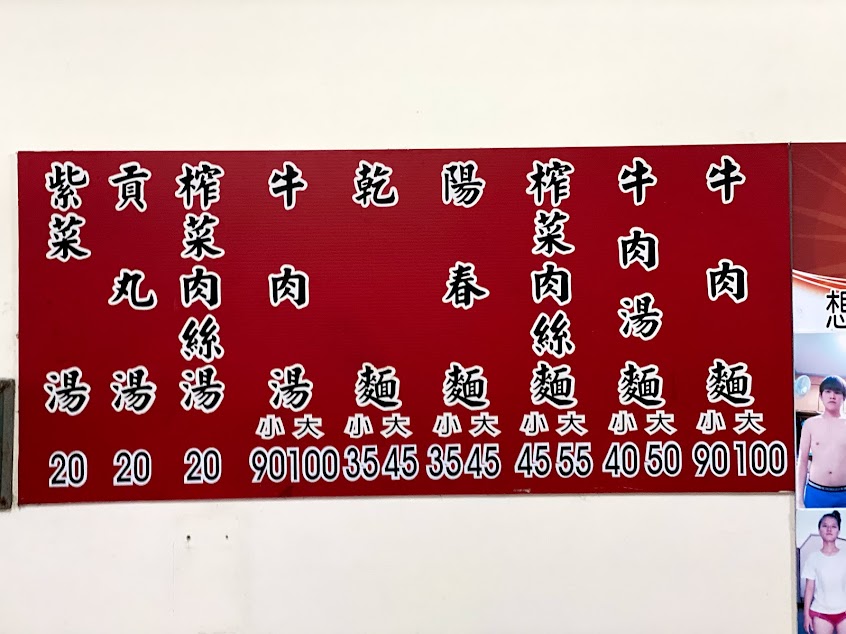 牛肉麵 小90 大100
牛肉湯麵 小40 大50
榨菜肉絲麵 小45 大55
陽春麵 小35 大45
乾麵 小35 大45
牛肉湯 小90 大100
榨菜肉絲湯 20
貢丸湯 20
紫菜湯 20
想